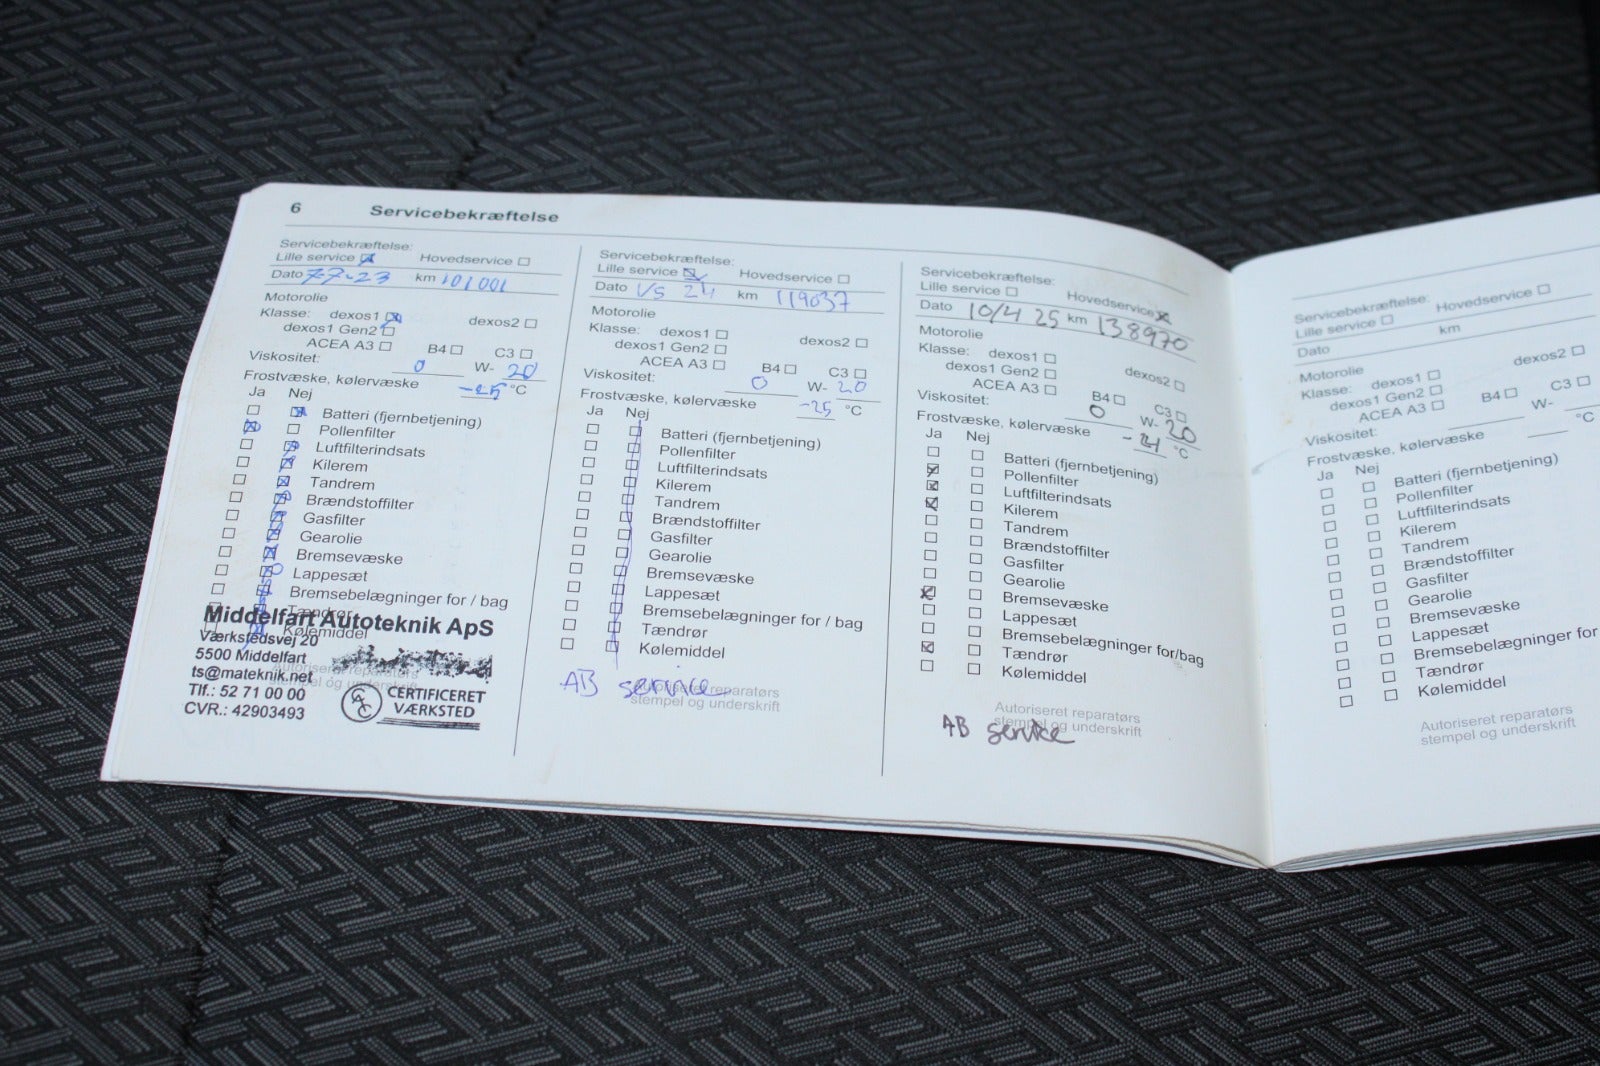 6 Servicebekræftelse
Servicebekræftelse:
Lille service Hovedservice
Dato 7-7-23 km 101001
Motorolie
Klasse: dexos1 dexos2
dexos1 Gen2
ACEA A3 B4 C3
Viskositet: 0 W- 20
Frostvæske, kølervæske -25 °C
Ja Nej
Batteri (fjernbetjening)
Pollenfilter
Luftfilterindsats
Kilerem
Tandrem
Brændstoffilter
Gasfilter
Gearolie
Bremsevæske
Lappesæt
Bremsebelægninger for / bag
Tændrør
Kølemiddel
Middelfart Autoteknik ApS
Værkstedsvej 20
5500 Middelfart
ts@mateknik.net
Tlf.: 52 71 00 00
CVR.: 42903493
CERTIFICERET
VÆRKSTED
Autoriseret reparatørs
stempel og underskrift
Servicebekræftelse:
Lille service Hovedservice
Dato 1/5 24 km 119037
Motorolie
Klasse: dexos1 dexos2
dexos1 Gen2
ACEA A3 B4 C3
Viskositet: 0 W- 20
Frostvæske, kølervæske -25 °C
Ja Nej
Batteri (fjernbetjening)
Pollenfilter
Luftfilterindsats
Kilerem
Tandrem
Brændstoffilter
Gasfilter
Gearolie
Bremsevæske
Lappesæt
Bremsebelægninger for / bag
Tændrør
Kølemiddel
AB service
Autoriseret reparatørs
stempel og underskrift
Servicebekræftelse:
Lille service Hovedservice
Dato 10/4 25 km 138970
Motorolie
Klasse: dexos1 dexos2
dexos1 Gen2
ACEA A3 B4 C3
Viskositet: 0 W- 20
Frostvæske, kølervæske -21 °C
Ja Nej
Batteri (fjernbetjening)
Pollenfilter
Luftfilterindsats
Kilerem
Tandrem
Brændstoffilter
Gasfilter
Gearolie
Bremsevæske
Lappesæt
Bremsebelægninger for/bag
Tændrør
Kølemiddel
Autoriseret reparatørs
stempel og underskrift
AB service
Servicebekræftelse:
Lille service Hovedservice
Dato km
Motorolie
Klasse: dexos1 dexos2
dexos1 Gen2
ACEA A3 B4 C3
Viskositet: W-
Frostvæske, kølervæske °C
Ja Nej
Batteri (fjernbetjening)
Pollenfilter
Luftfilterindsats
Kilerem
Tandrem
Brændstoffilter
Gasfilter
Gearolie
Bremsevæske
Lappesæt
Bremsebelægninger for
Tændrør
Kølemiddel
Autoriseret reparatørs
stempel og underskrift